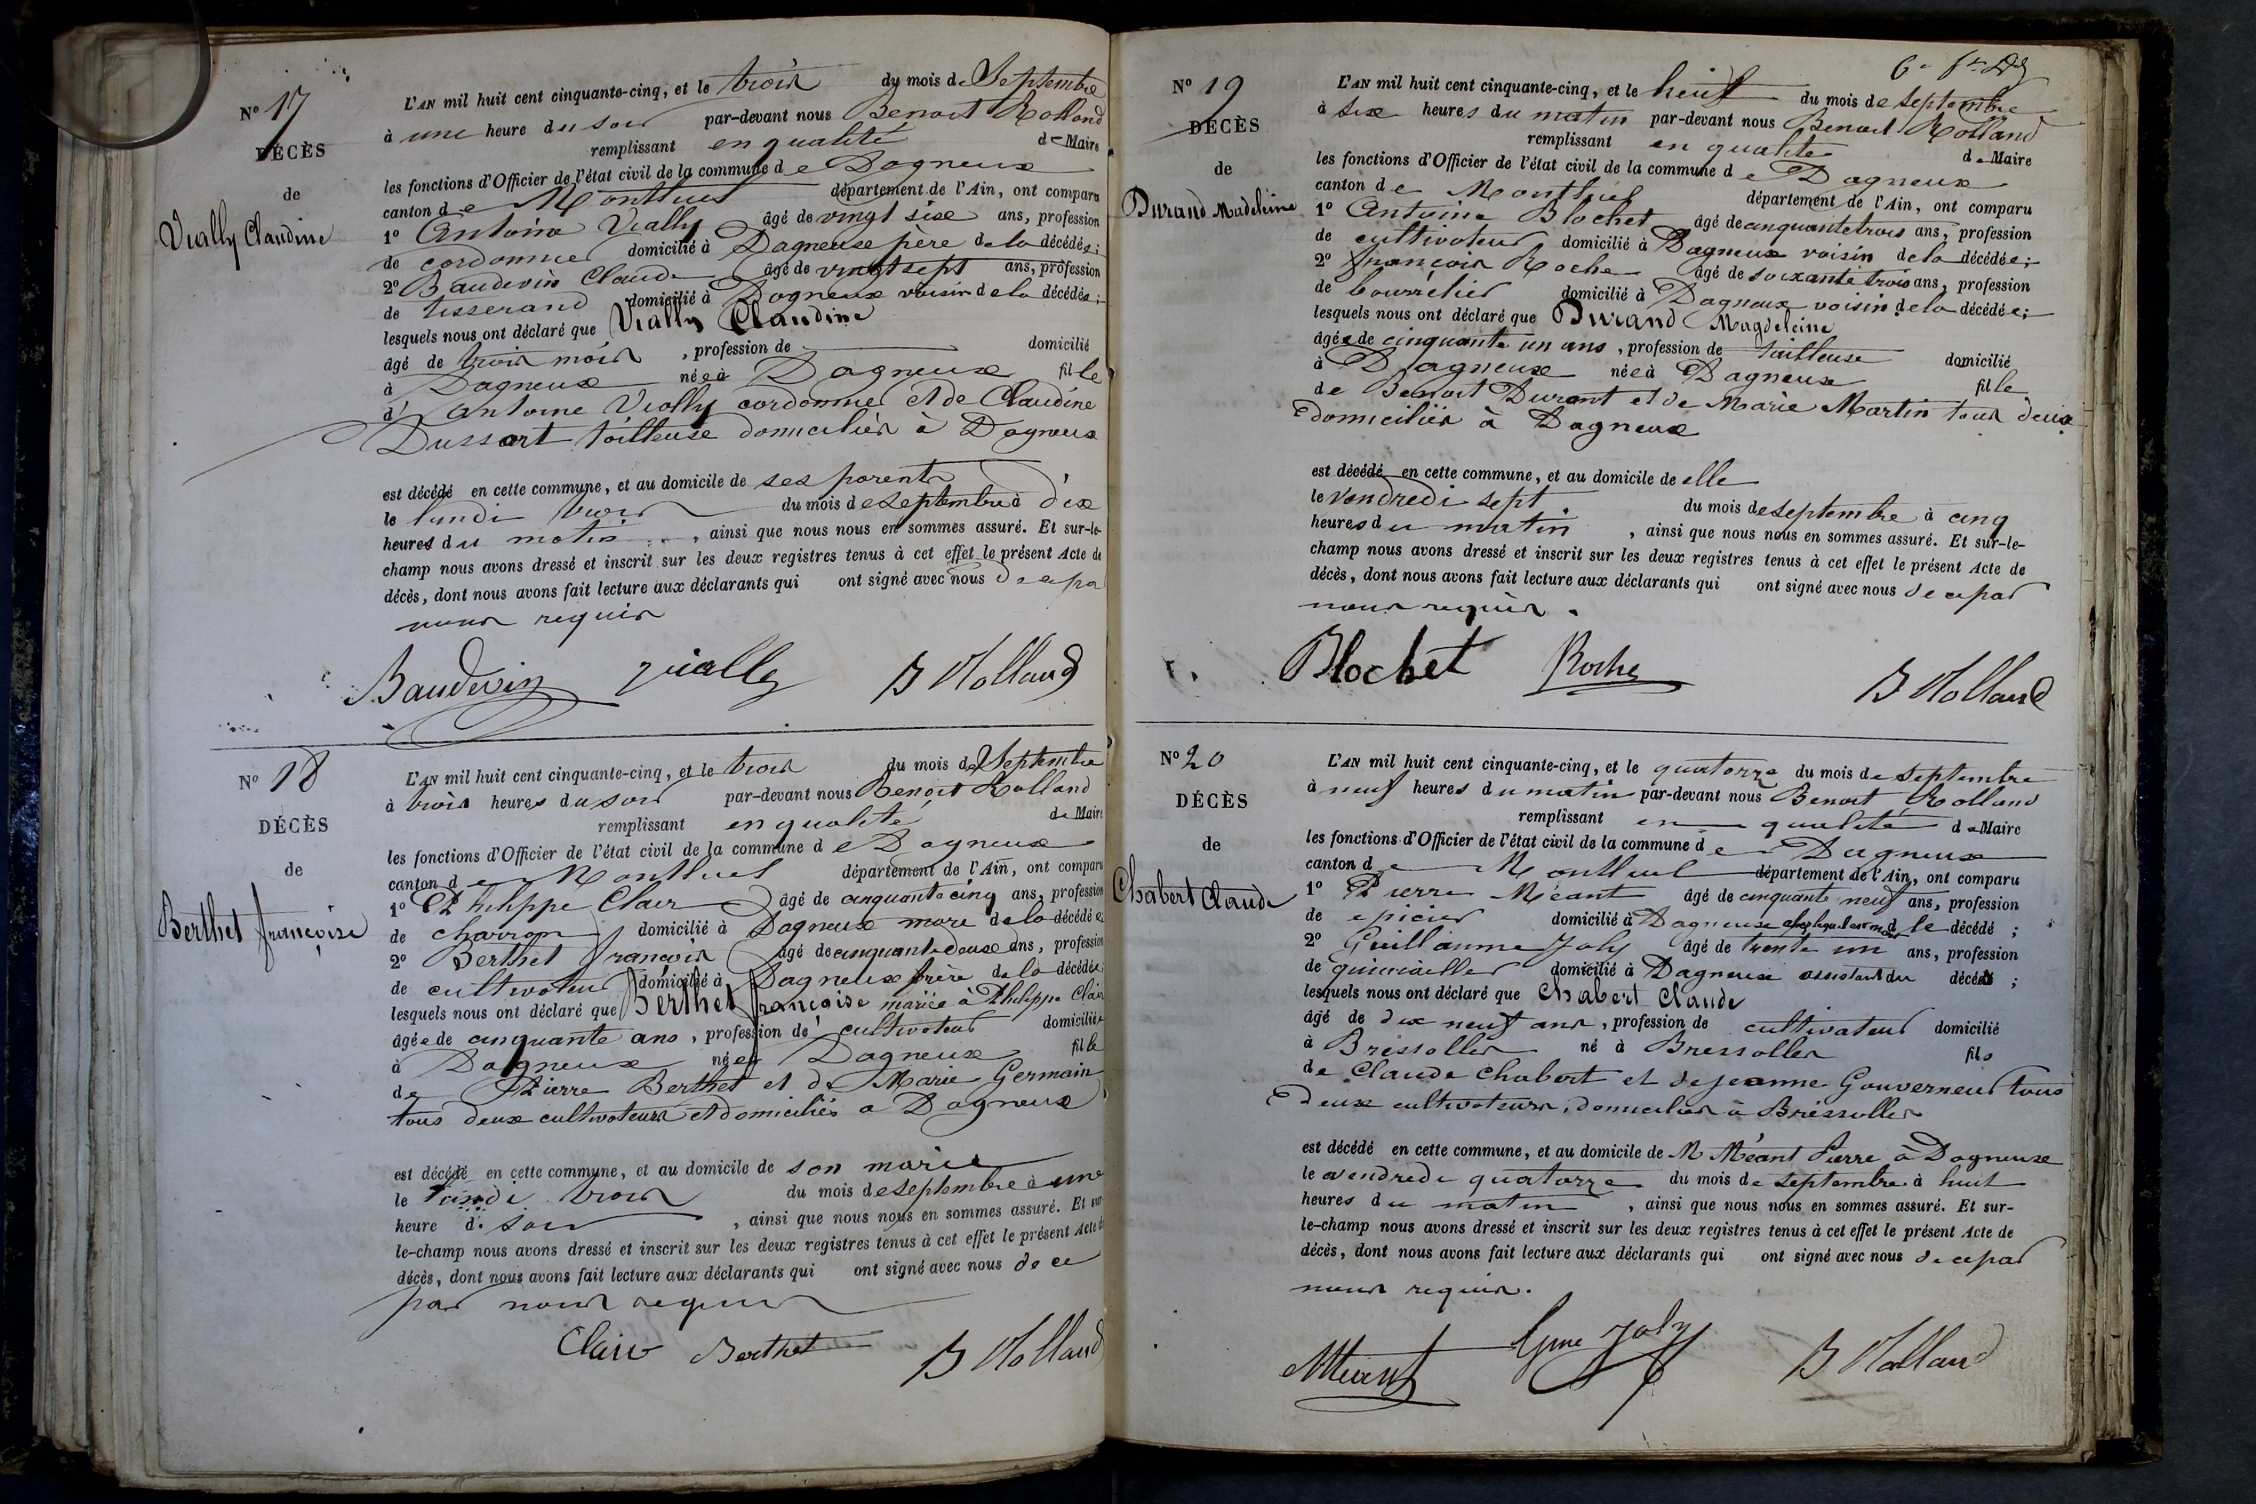 Nº 17
DÉCÈS
de
Vially Claudine
L'AN mil huit cent cinquante-cinq, et le trois du mois de Septembre
à une heure du soir par-devant nous Benoit Rolland
remplissant en qualité de Maire
les fonctions d'Officier de l'état civil de la commune de Dagneux
canton de Montluel département de l'Ain, ont comparu
1º Antoine Vially âgé de vingt sixe ans, profession
de cordonnier domicilié à Dagneux père de la décédée;
2º Baudevin Claude âgé de vingt sept ans, profession
de tisserand domicilié à Dagneux voisin de la décédée;
lesquels nous ont déclaré que Vially Claudine
âgé de trois mois, profession de domicilié
à Dagneux née à Dagneux fille
d' Antoine Vially cordonnier et de Claudine
Dussort tailleuse domiciliés à Dagneux
est décédé en cette commune, et au domicile de ses parents
le lundi trois du mois de septembre à dix
heures du matin, ainsi que nous nous en sommes assuré. Et sur-le-
champ nous avons dressé et inscrit sur les deux registres tenus à cet effet le présent Acte de
décès, dont nous avons fait lecture aux déclarants qui ont signé avec nous de ce par
nous requis
Baudevin Vially B Rolland
Nº 18
DÉCÈS
de
Berthet françoise
L'AN mil huit cent cinquante-cinq, et le trois du mois de Septembre
à trois heures du soir par-devant nous Benoit Rolland
remplissant en qualité de Maire
les fonctions d'Officier de l'état civil de la commune de Dagneux
canton de Montluel département de l'Ain, ont comparu
1º Philippe Clair âgé de cinquante cinq ans, profession
de charron domicilié à Dagneux mari de la décédée;
2º Berthet françois âgé de cinquante deuxe ans, profession
de cultivateur domicilié à Dagneux frère de la décédée
lesquels nous ont déclaré que Berthet françoise mariée à Philippe Clair
âgée de cinquante ans, profession de cultivateur domiciliée
à Dagneux née à Dagneux fille
de Pierre Berthet et de Marie Germain
tous deux cultivateurs et domiciliés a Dagneux
est décédé en cette commune, et au domicile de son marie
le lundi trois du mois de septembre à une
heure d. soir, ainsi que nous nous en sommes assuré. Et sur-
le-champ nous avons dressé et inscrit sur les deux registres tenus à cet effet le présent Acte de
décès, dont nous avons fait lecture aux déclarants qui ont signé avec nous de ce
par nous requis
Clair Berthet B Rolland
Nº 19
DÉCÈS
de
Durand Madeleine
L'AN mil huit cent cinquante-cinq, et le huit du mois de septembre
à six heures du matin par-devant nous Benoit Rolland
remplissant en qualité de Maire
les fonctions d'Officier de l'état civil de la commune de Dagneux
canton de Montluel département de l'Ain, ont comparu
1º Antoine Blochet âgé de cinquante trois ans, profession
de cultivateur domicilié à Dagneux voisin de la décédée;
2º françois Roche âgé de soixante trois ans, profession
de bourrelier domicilié à Dagneux voisin de la décédée;
lesquels nous ont déclaré que Durand Magdeleine
âgée de cinquante un ans, profession de tailleuse domicilié
à Dagneux née à Dagneux fille
de Benoit Durant et de Marie Martin tous deux
domiciliés à Dagneux
est décédé en cette commune, et au domicile de elle
le vendredi sept du mois de septembre à cinq
heures du matin, ainsi que nous nous en sommes assuré. Et sur-le-
champ nous avons dressé et inscrit sur les deux registres tenus à cet effet le présent Acte de
décès, dont nous avons fait lecture aux déclarants qui ont signé avec nous de ce par
nous requis.
Blochet Roche B Rolland
Nº 20
DÉCÈS
de
Chabert Claude
L'AN mil huit cent cinquante-cinq, et le quatorze du mois de septembre
à neuf heures du matin par-devant nous Benoit Rolland
remplissant en qualité de Maire
les fonctions d'Officier de l'état civil de la commune de Dagneux
canton de Montluel département de l'Ain, ont comparu
1º Pierre Méant âgé de cinquante neuf ans, profession
de epicier domicilié à Dagneux chez lequel est mort le décédé;
2º Guillaume Joly âgé de trente un ans, profession
de quincailler domicilié à Dagneux assistant du décédé;
lesquels nous ont déclaré que Chabert Claude
âgé de dix neuf ans, profession de cultivateur domicilié
à Bressolles né à Bressolles fils
de Claude Chabert et de jeanne Gouverneur tous
deux cultivateurs, domiciliés à Bressolles
est décédé en cette commune, et au domicile de M Méant Pierre à Dagneux
le vendredi quatorze du mois de septembre à huit
heures du matin, ainsi que nous nous en sommes assuré. Et sur-
le-champ nous avons dressé et inscrit sur les deux registres tenus à cet effet le présent Acte de
décès, dont nous avons fait lecture aux déclarants qui ont signé avec nous de ce par
nous requis.
Méant Gme Joly B Rolland